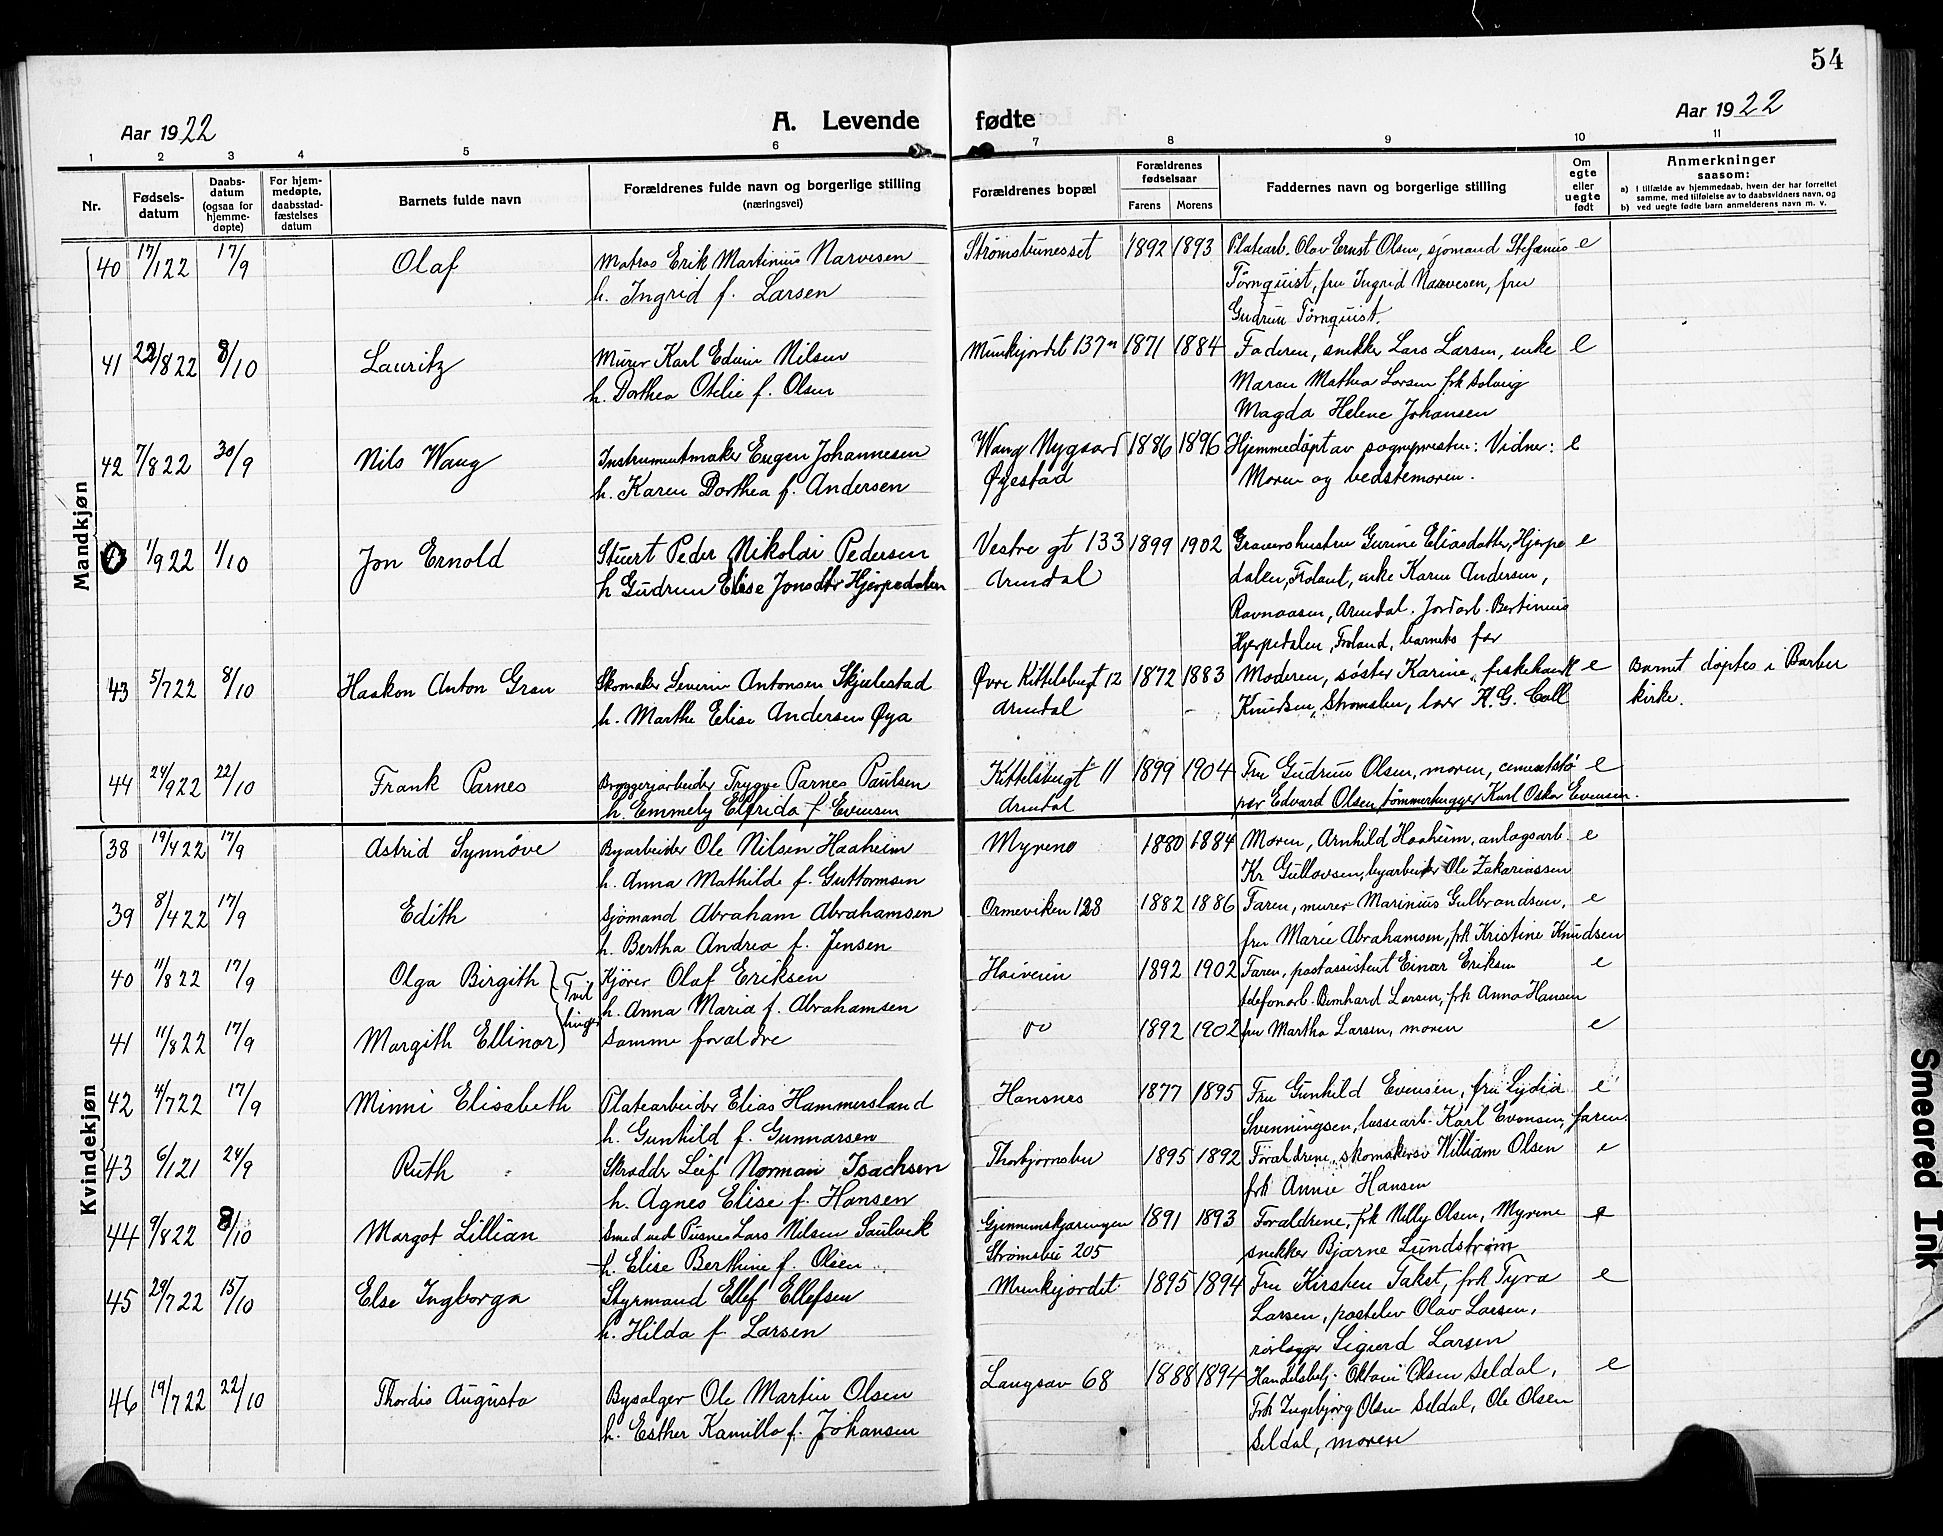 54
Aar 1922
A. Levende fødte
Aar 1922
1 2 3 4 5 6 7 8 9 10 11
Nr.
Fødsels-
datum
Daabs-
datum
(ogsaa for
hjemme-
døpte)
For hjem-
medøpte,
daabsstad-
fæstelses
datum
Barnets fulde navn
Forældrenes fulde navn og borgerlige stilling
(næringsvei)
Forældrenes bopæl
Forældrenes
fødselsaar
Farens Morens
Faddernes navn og borgerlige stilling
Om
egte
eller
uegte
født
Anmerkninger
saasom:
a) i tilfælde av hjemmedaab, hvem der har forrettet
samme, med tilføielse av to daabsvidners navn, og
b) ved uegte fødte barn anmelderens navn m. v.
Mandkjøn
40 17/1 22 17/9 Olaf Matros Erik Martinius Narvesen Strømsbunesset 1892 1893 Platearb. Olav Ernst Olsen, sjømand Stefanus e
h. Ingrid f. Larsen Törnquist, fru Ingrid Narvesen, fru
Gudrun Törnquist.
41 22/8 22 8/10 Lauritz Murer Karl Edvin Nilsen Munkjordet 137 1871 1884 Faderen, snekker Lars Larsen, enke e
h. Dorthea Otelie f. Olsen Maren Mathea Larsen frk Solveig
Magda Helene Johansen
42 7/8 22 30/9 Nils Wang Instrumentmaker Eugen Johannesen Wang Nygaard 1886 1896 Hjemmedøpt av sognepresten: Vidner: e
h. Karen Dorthea f. Andersen Øyestad Moren og bedstemoren.
0 1/9 22 1/10 Jon Ernold Stuert Peder Nikolai Pedersen Vestre gt 133 1899 1902 Graverhustru Gurine Eliasdatter, Hjerpe e
h. Gudrun Elise Jonsdtr Hjerpedalen Arendal dalen, Froland, enke Karen Andersen,
Ravnaasen, Arendal. Jordarb. Bertinius
Hjerpedalen, Froland, barnets far
43 5/7 22 8/10 Haakon Anton Gran Skomaker Severin Antonsen Skjulestad Øvre Kittelsbugt 12 1872 1883 Moderen, søster Karine, fiskehandl e Barnet døptes i Barbu
h. Marthe Elise Andersen Øya Arendal Knudsen, Strømsbu, lærer K. G. Coll kirke.
44 24/9 22 22/10 Frank Parnes Bryggeriarbeider Trygve Parnes Paulsen Kittelsbugt 11 1899 1904 Fru Gudrun Olsen, moren, cementstø e
h. Emmely Elfrida f. Evensen Arendal per Edvard Olsen, tømmerhugger Karl Oskar Evensen.
Kvindekjøn
38 19/4 22 17/9 Astrid Synnøve Byarbeider Ole Nilsen Haaheim Myrene 1880 1884 Moren, Arnhild Haaheim, anlægsarb. e
h. Anna Mathilde f. Guttormsen Kr Gullovsen, byarbeider Ole Zakariassen
39 8/4 22 17/9 Edith Sjömand Abraham Abrahamsen Ormeviken 128 1882 1886 Faren, murer Marinius Gulbrandsen, e
h. Bertha Andrea f. Jensen fru Marie Abrahamsen, frk Kristine Knudsen
40 11/8 22 17/9 Olga Birgith } Tvil Kjører Olaf Eriksen Heiveien 1892 1902 Faren, postassistent Einar Eriksen e
h. Anna Maria f. Abrahamsen telefonarb. Bernhard Larsen, frk Anna Hansen
41 11/8 22 17/9 Margith Ellinor } linger Samme forældre do 1892 1902 fru Martha Larsen, moren e
42 4/7 22 17/9 Minni Elisabeth Platearbeider Elias Hammersland Hansnes 1877 1895 Fru Gunhild Evensen, fru Lydia e
h. Gunhild f. Gunnarsen Svenningsen, lossearb. Karl Evensen, faren.
43 6/1 21 24/9 Ruth Skrædder Leif Norman Isachsen Thorbjørnsbu 1895 1892 Forældrene, skomakersv William Olsen e
h. Agnes Elise f. Hansen frk Annie Hansen
44 9/8 22 8/10 Margot Lillian Smed ved Pusnes Lars Nilsen Saulvik Gjennemskjæringen 1891 1893 Forældrene, frk Nelly Olsen, Myrene e
h. Elise Berthine f. Olsen Strømsbu 205 snekker Bjarne Lundstrøm
45 29/7 22 15/10 Else Ingborga Styrmand Ellef Ellefsen Munkjordet 1895 1894 Fru Kirsten Takst, frk Tyra e
h. Hilda f. Larsen Larsen, postelev Olav Larsen,
rørlægger Sigurd Larsen
46 19/7 22 22/10 Thordis Augusta Bysælger Ole Martin Olsen Langsæv 68 1888 1894 Handelsbetj. Oktavi Olsen Seldal, e
h. Esther Kamilla f. Johansen Frk Ingebjørg Olsen Seldal, Ole Olsen
Seldal, moren
Smeared Ink